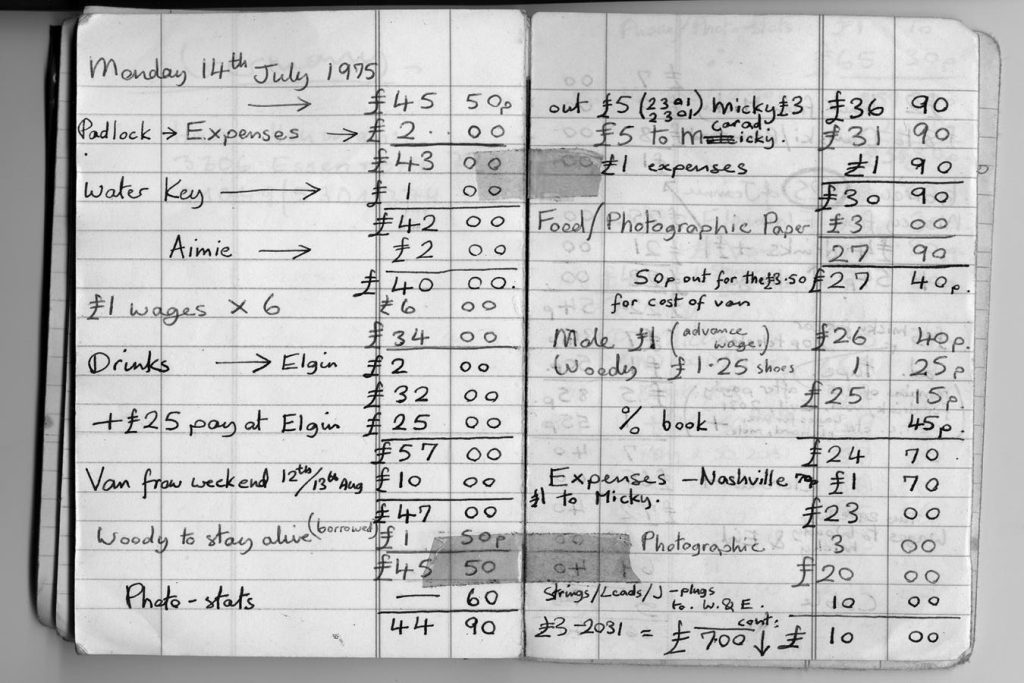 Monday 14th July 1975
→ £45 50p
Padlock → Expenses → £2 00
£43 00
Water Key → £1 00
£42 00
Aimie → £2 00
£40 00.
£1 wages x 6 £6 00
£34 00
Drinks → Elgin £2 00
£32 00
+£25 pay at Elgin £25 00
£57 00
Van from weekend 12th/13th Aug £10 00
£47 00
Woody to stay alive (borrowed) £1 50p
£45 50
Photo-stats — 60
44 90
out £5 (2301 2301) Micky £3 £36 90
£5 to Micky. £31 90
£1 expenses £1 90
£30 90
Food/Photographic Paper £3 00
27 90
50p out for the £3.50 £27 40p.
for cost of van
Mole £1 (advance wages) £26 40p.
Woody £1.25 shoes 1 25p
£25 15p.
% book 45p.
£24 70
Expenses - Nashville £1 70
£1 to Micky.
£23 00
Photographic 3 00
£20 00
Strings/Leads/J-plugs
to. W. & E. 10 00
£3-2031 = £700 cont: ↓ £10 00